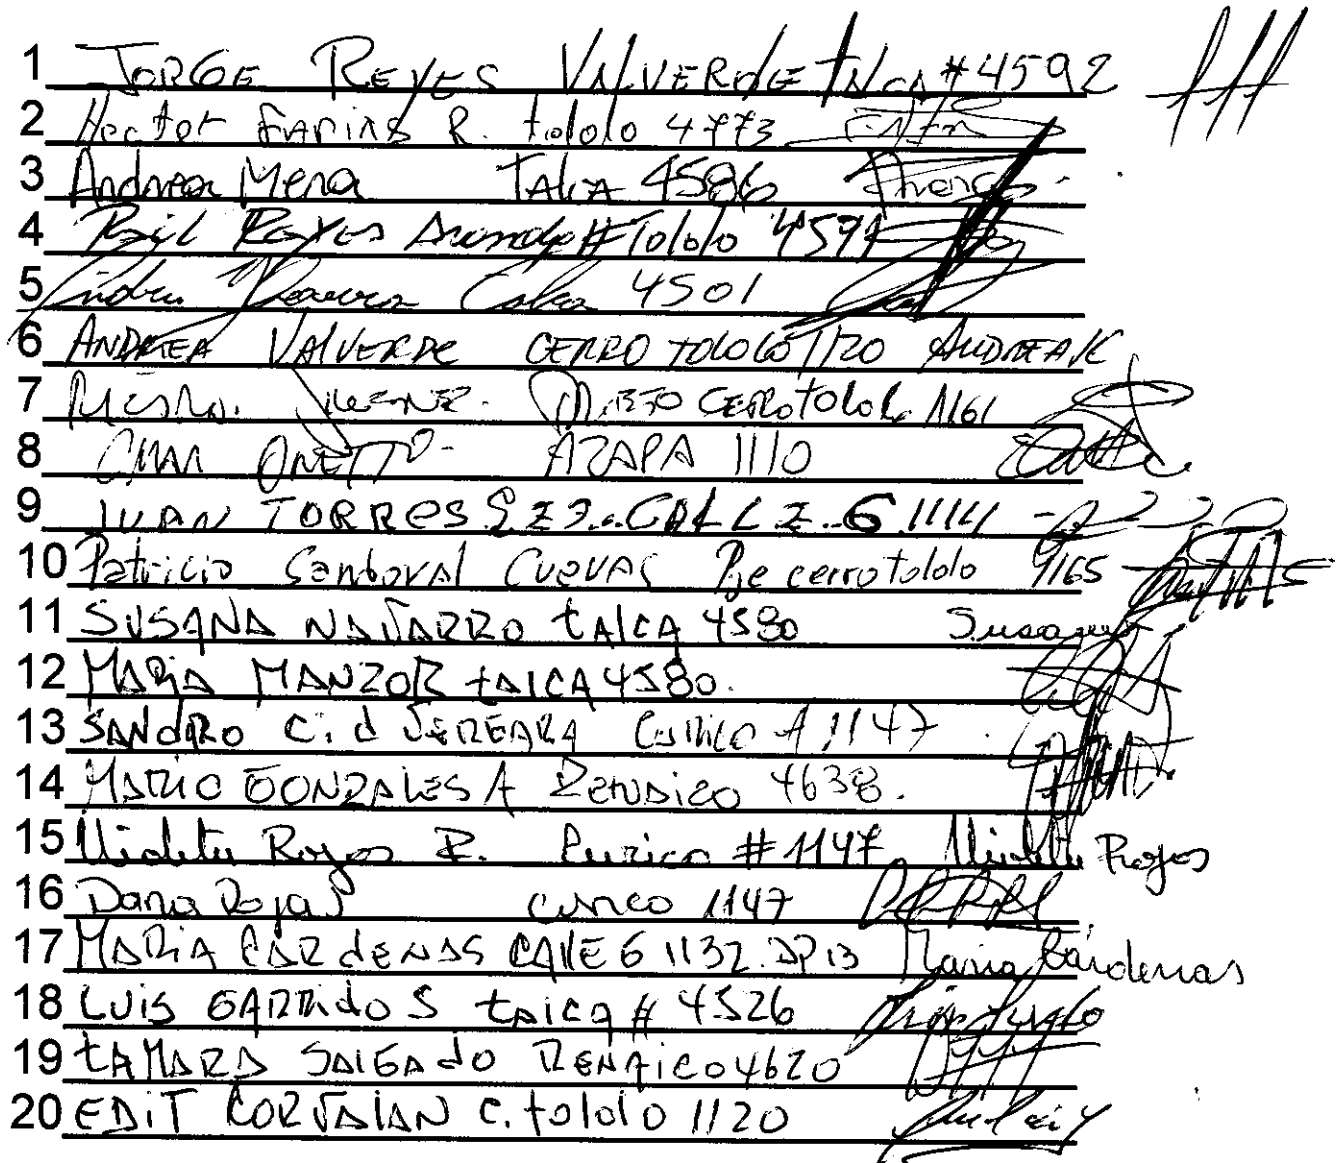 1 JORGE REYES VALVERDE TALCA #4592
2 Hector FARIAS R. tololo 4773
3 Andrea Mena TALCA 4586
4 Reyes #Tololo 459
5 4501
6 ANDREA VALVERDE CERRO TOLOLO 1120 ANDREA
7 CERRO TOLOLO 1161
8 ONETTO AZAPA 1110
9 JUAN TORRES CALLE 6 1114
10 Patricio Sandoval Cuevas Pje cerro tololo 1165
11 SUSANA NAVARRO tALCA 4580 Susana
12 MARIA MANZOR tALCA 4580.
13 SANdRO Cid VERGARA 1147
14 MARIO GONZALES A RENAICO 4638.
15 Violeta Rojas R. Curico #1147 Violeta Rojas
16 Rojas curico 1147
17 MARIA CARdENAS CALLE 6 1132 DP 13 Maria Cárdenas
18 LUIS GARRIdO S tALCA # 4526
19 tAMARA SALGAdO RENAICO 4620
20 EDIT C. tololo 1120